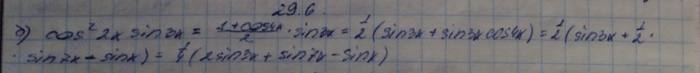 29.6
б) cos² 2x sin3x = (1+cos4x)/2 · sin3x = 1/2 (sin3x + sin3x cos4x) = 1/2 (sin3x + 1/2 ·
· sin7x - sinx) = 1/4 (2sin3x + sin7x - sinx)